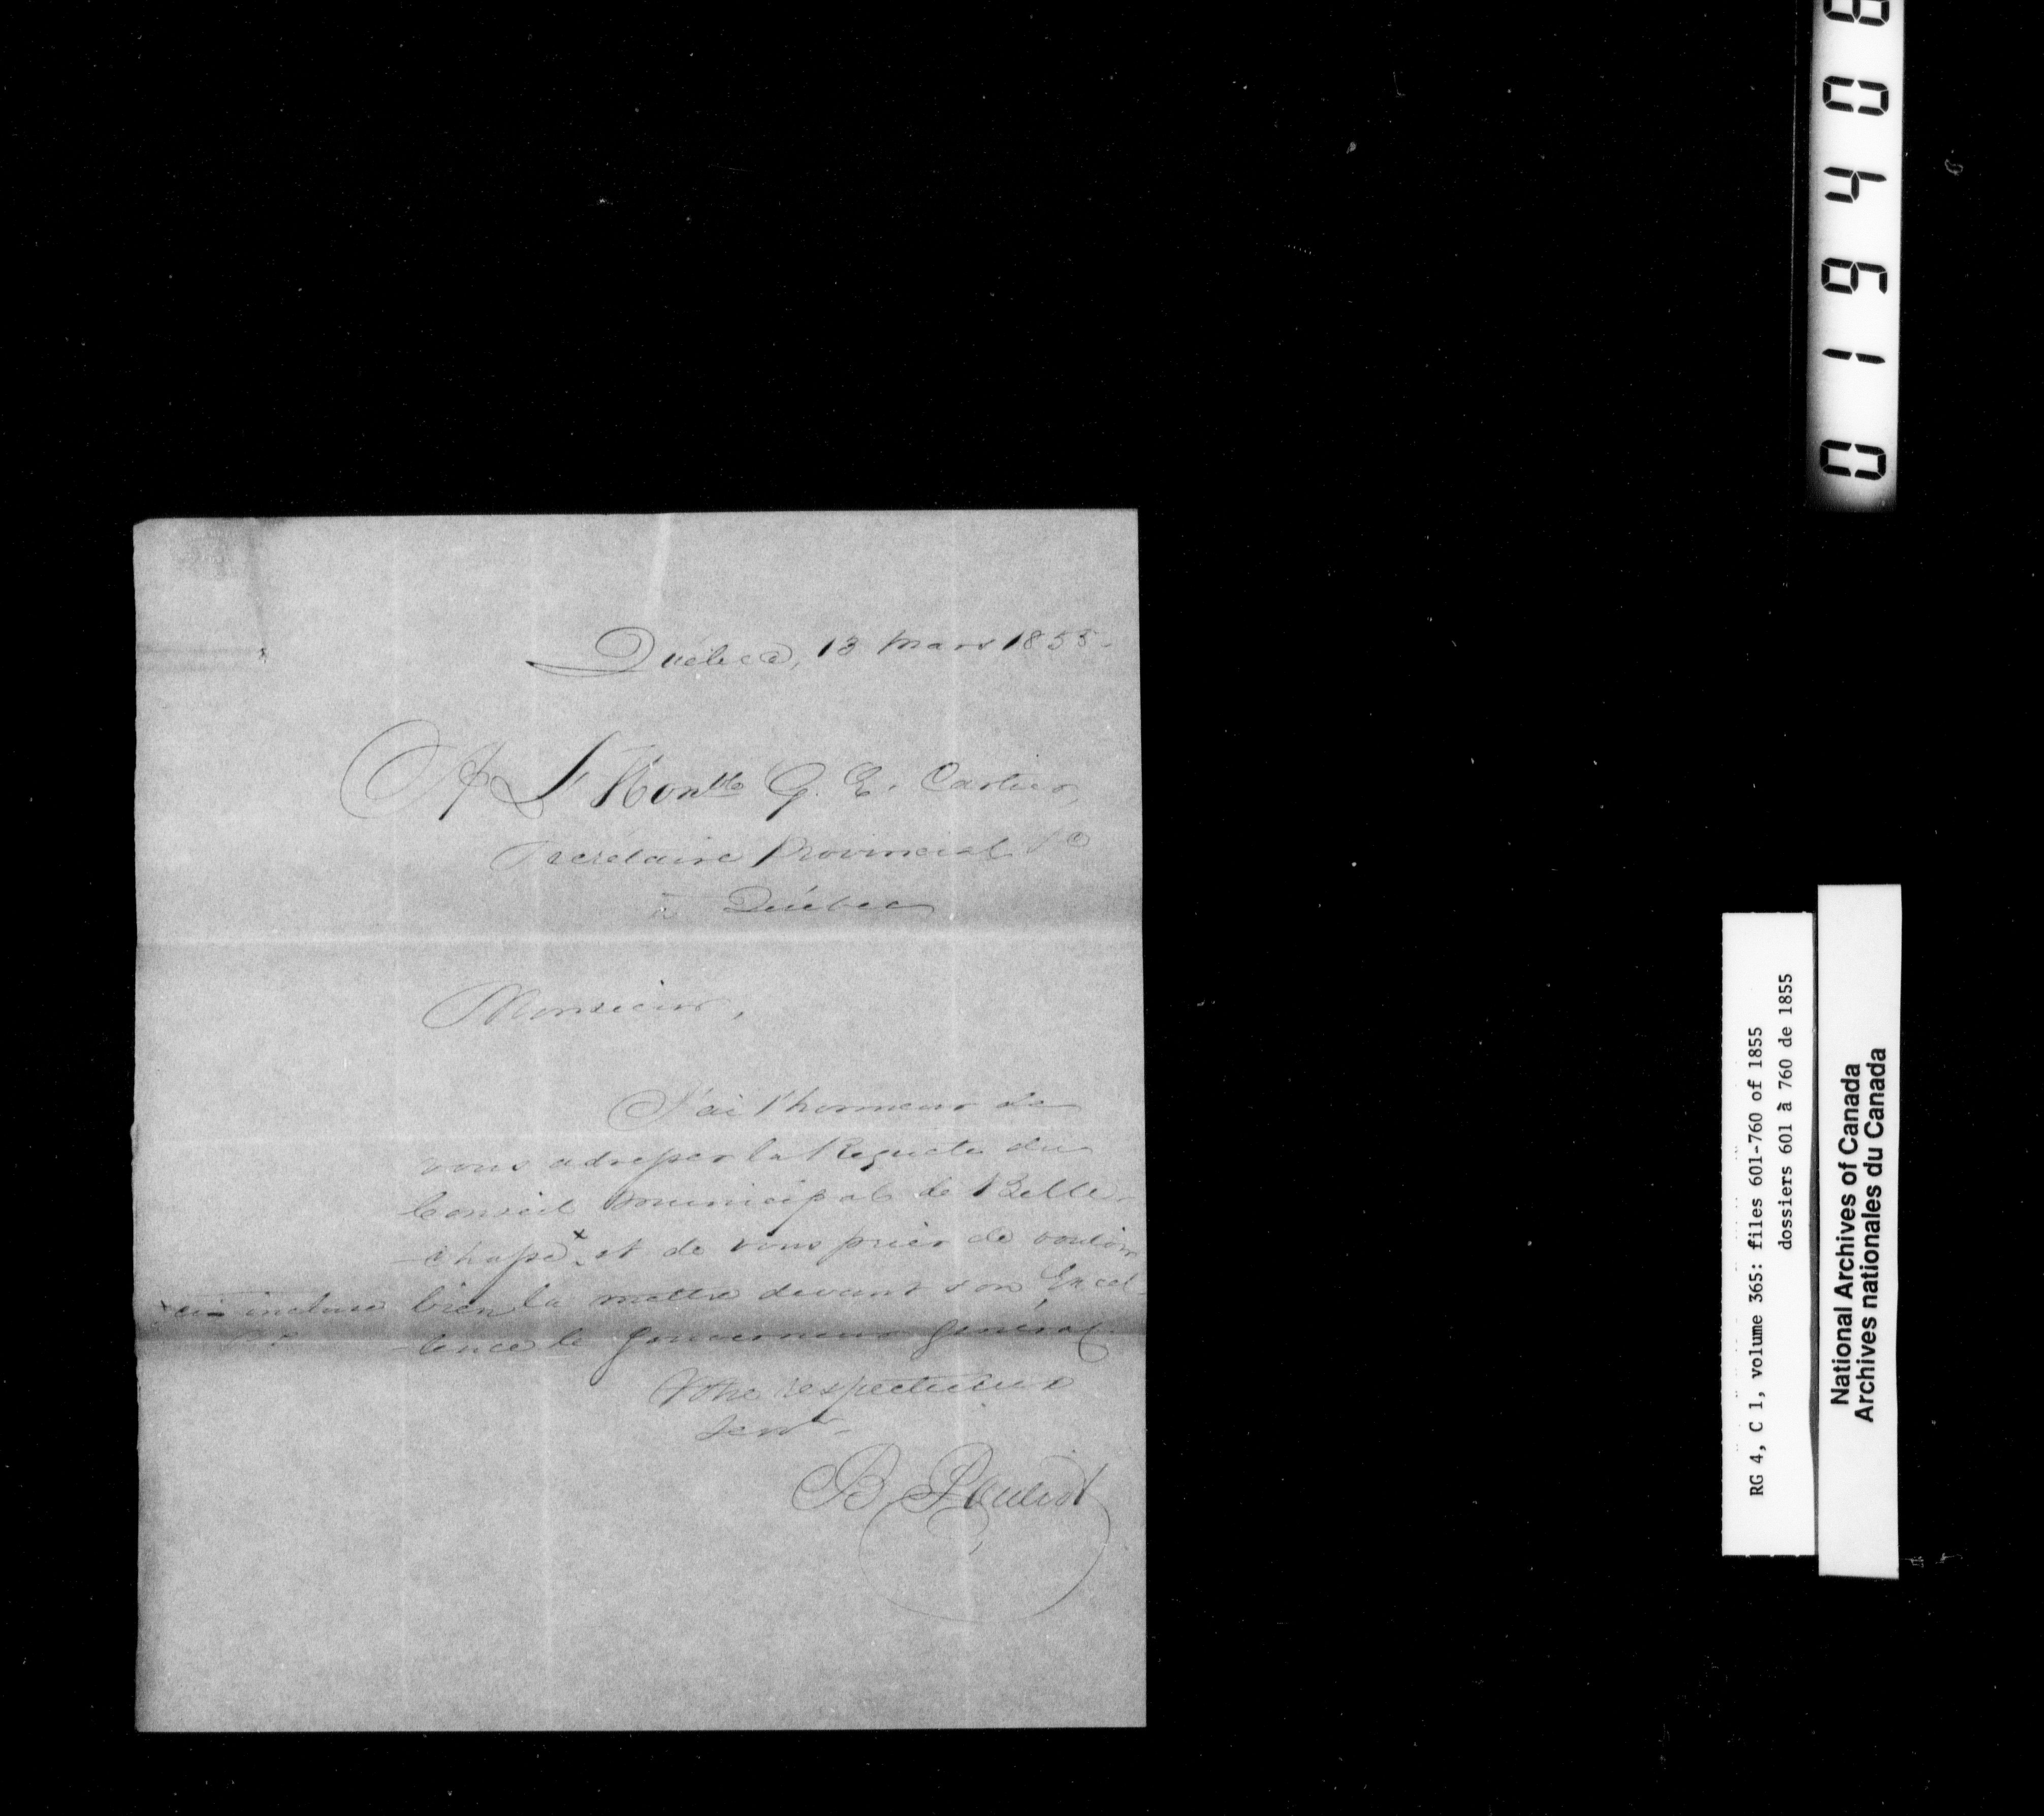 Québec, 13 Mars 1855.
A L'Honble G. E. Cartier,
Secrétaire Provincial &c
à Québec
Monsieur,
J'ai l'honneur de
vous adresser la Requete du
Conseil Municipal de Belle-
-chasse x et de vous prier de vouloir
x ci-incluse
bien la mettre devant son Excel-
-lence le Gouverneur Général.
Votre respectueux
servr.
B. Pouliot
0 1 9 4 0 8
RG 4, C 1, volume 365: files 601-760 of 1855
dossiers 601 à 760 de 1855
National Archives of Canada
Archives nationales du Canada